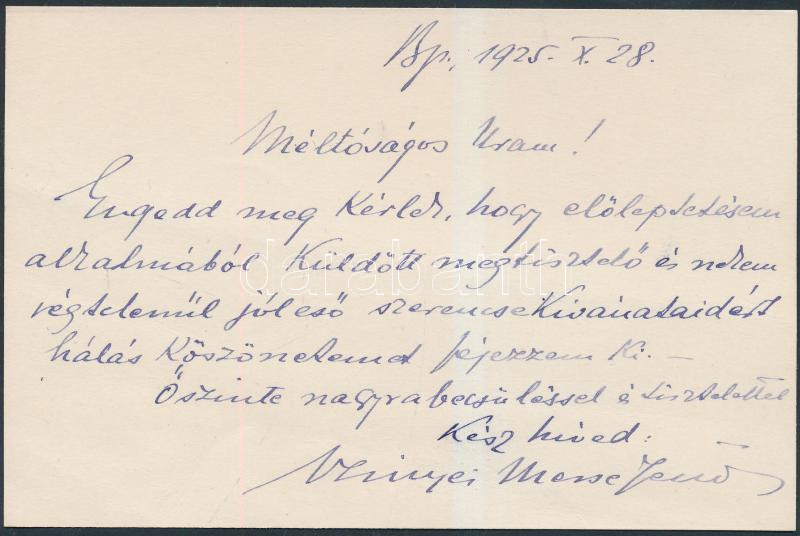 Bp., 1925. X. 28.
Méltóságos Uram!
Engedd meg kérlek, hogy előléptetésem
alkalmából küldött megtisztelő és nekem
végtelenül jóleső szerencsekivánataidért
hálás köszönetemet fejezzem ki. –
Őszinte nagyrabecsüléssel és tisztelettel
kész hived:
Szinyei Merse Jenő
darabanth